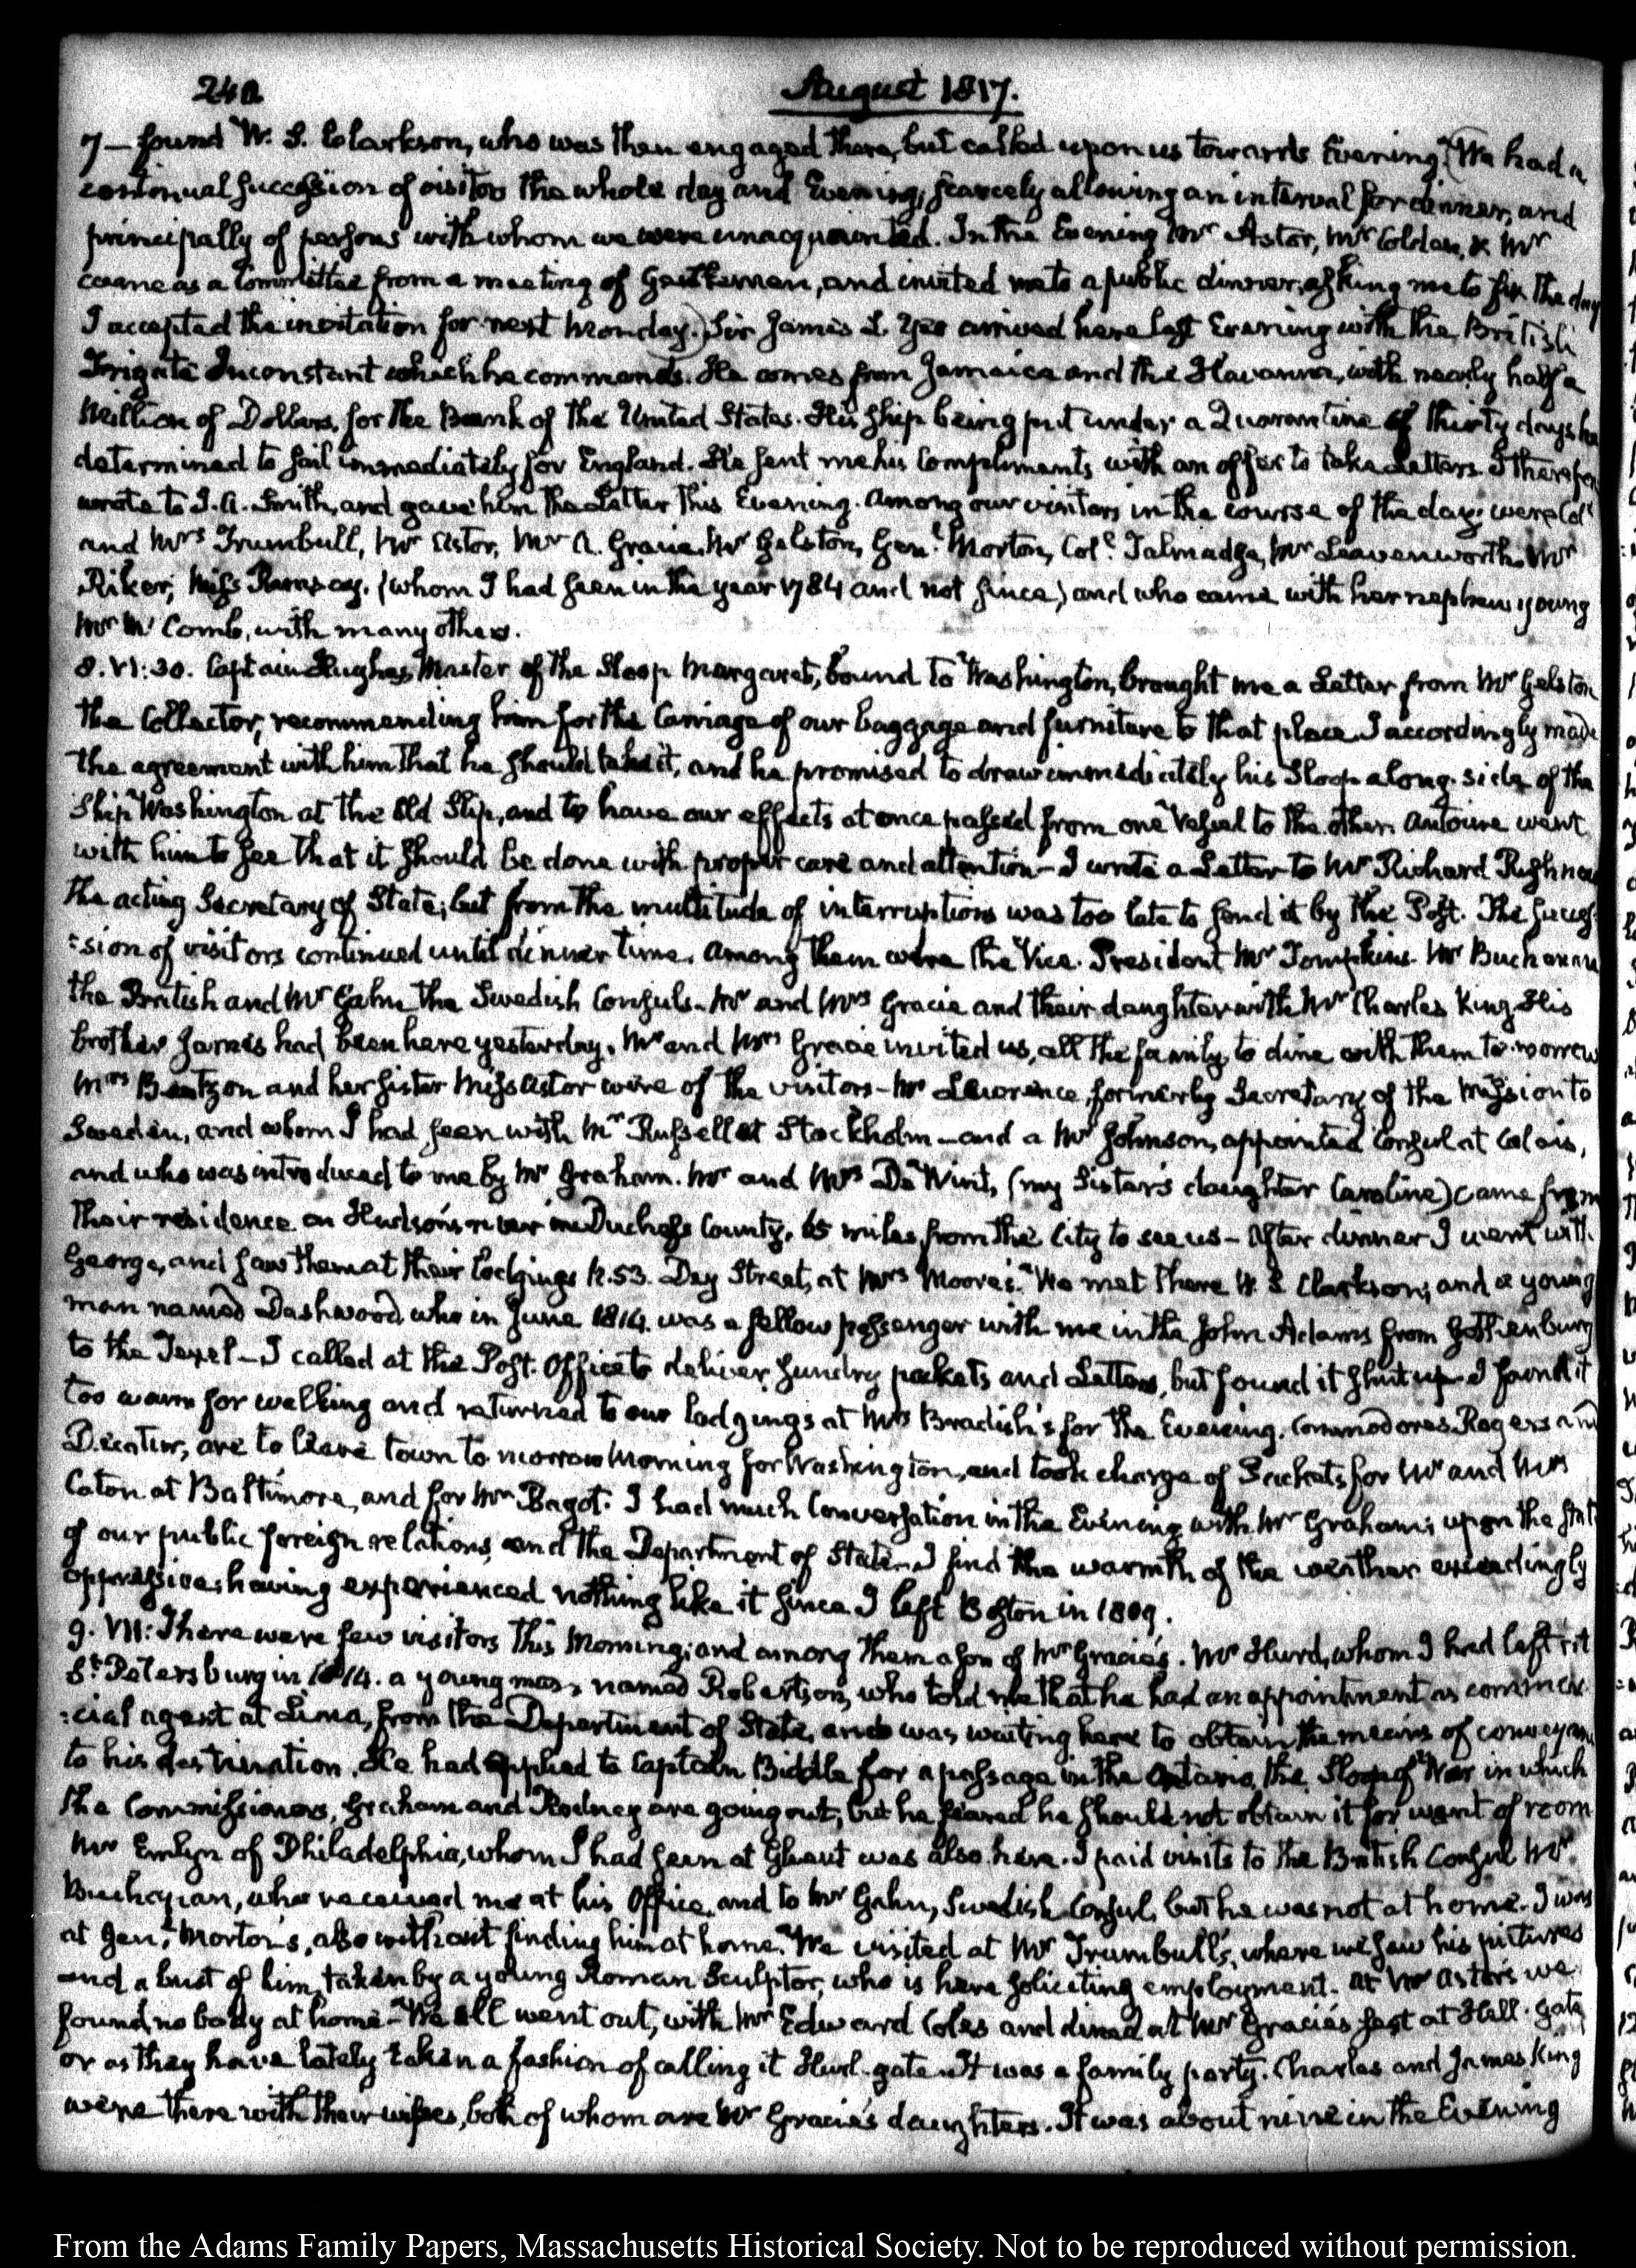 240
August 1817.
7 — found W. S. Clarkson, who was then engaged there, but called upon us towards Evening. (We had a
continual succession of visitors the whole day and Evening, scarcely allowing an interval for dinner, and
principally of persons with whom we were unacquainted. In the Evening Mr Astor, Mr Colden, & Mr
came as a Committee from a meeting of Gentlemen, and invited me to a public dinner, asking me to fix the day
I accepted the invitation for next Monday.) Sir James L. Yeo arrived here last Evening with the British
Frigate Inconstant which he commands. He comes from Jamaica and the Havanna, with nearly half a
Million of Dollars, for the Bank of the United States. His ship being put under a Quarantine of thirty days he
determined to sail immediately for England. He sent me his Compliments with an offer to take Letters. I therefore
wrote to J. A. Smith, and gave him the Letter this Evening. Among our visitors in the course of the day, were Col.
and Mrs Trumbull, Mr Astor, Mr A. Gracie, Mr Gelston, Genl. Morton, Coll. Talmadge, Mr Leavenworth, Mr
Riker, Miss Ramsay, (whom I had seen in the year 1784 and not since,) and who came with her nephew young
Mr Mc Comb, with many others.
8. VI:30. Captain Hughes, Master of the Sloop Margaret, bound to Washington, brought me a Letter from Mr Gelston
the Collector, recommending him for the Carriage of our baggage and furniture to that place. I accordingly made
the agreement with him that he should take it, and he promised to draw immediately his Sloop along-side of the
Ship Washington at the Old Slip, and to have our effects at once passed from one Vessel to the other. Antoine went
with him to see that it should be done with proper care and attention — I wrote a Letter to Mr Richard Rush now
the acting Secretary of State; but from the multitude of interruptions was too late to send it by the Post. The succes-
:sion of visitors continued until dinner time. Among them were the Vice-President Mr Tompkins. Mr Buchanan
the British and Mr Gahn the Swedish Consuls. Mr and Mrs Gracie and their daughter with Mr Charles King. His
brother James had been here yesterday. Mr and Mrs Gracie invited us, all the family, to dine with them to-morrow
Mrs Bentzon and her Sister Miss Astor were of the visitors — Mr Lawrence, formerly Secretary of the Mission to
Sweden, and whom I had seen with Mr Russell at Stockholm — and a Mr Johnson, appointed Consul at Calais,
and who was introduced to me by Mr Graham. Mr and Mrs De Wint, (my Sister's daughter Caroline) came from
their residence on Hudson's river in Duchess County, 65 miles from the City to see us — After dinner I went with
George, and saw them at their lodgings N. 53. Dey Street, at Mrs Moore's. We met there W. S. Clarkson; and a young
man named Dashwood, who in June 1814. was a fellow passenger with me in the John Adams from Gothenburg
to the Texel — I called at the Post-Office to deliver sundry packets and Letters, but found it shut up. I found it
too warm for walking and returned to our lodgings at Mrs Bradish's for the Evening. Commodores Rogers and
Decatur, are to leave town to morrow Morning for Washington, and took charge of Packets for Mr and Mrs
Caton at Baltimore, and for Mr Bagot. I had much Conversation in the Evening with Mr Graham; upon the state
of our public foreign relations, and the Department of State. I find the warmth of the weather exceedingly
oppressive; having experienced nothing like it since I left Boston in 1809.
9. VII: There were few visitors this Morning; and among them a son of Mr Gracie's. Mr Hurd, whom I had left at
St. Petersburg in 1814. a young man, named Robertson, who told me that he had an appointment as commer-
:cial agent at Lima, from the Department of State, and was waiting here to obtain the means of conveyance
to his destination. He had applied to Captain Biddle for a passage in the Ontario, the Sloop of War in which
the Commissioners, Graham and Rodney are going out, but he feared he should not obtain it for want of room
Mr Emlyn of Philadelphia, whom I had seen at Ghent was also here. I paid visits to the British Consul Mr
Buchanan, who received me at his Office, and to Mr Gahn, Swedish Consul, but he was not at home. I was
at Genl. Morton's, also without finding him at home. We visited at Mr Trumbull's, where we saw his pictures
and a bust of him, taken by a young Roman Sculptor, who is here soliciting employment. At Mr Astor's we
found no body at home — We all went out, with Mr Edward Coles and dined at Mr Gracie's seat at Hell-gate
or as they have lately taken a fashion of calling it Hurl-gate. It was a family party. Charles and James King
were there with their wives, both of whom are Mr Gracie's daughters. It was about nine in the Evening
From the Adams Family Papers, Massachusetts Historical Society. Not to be reproduced without permission.